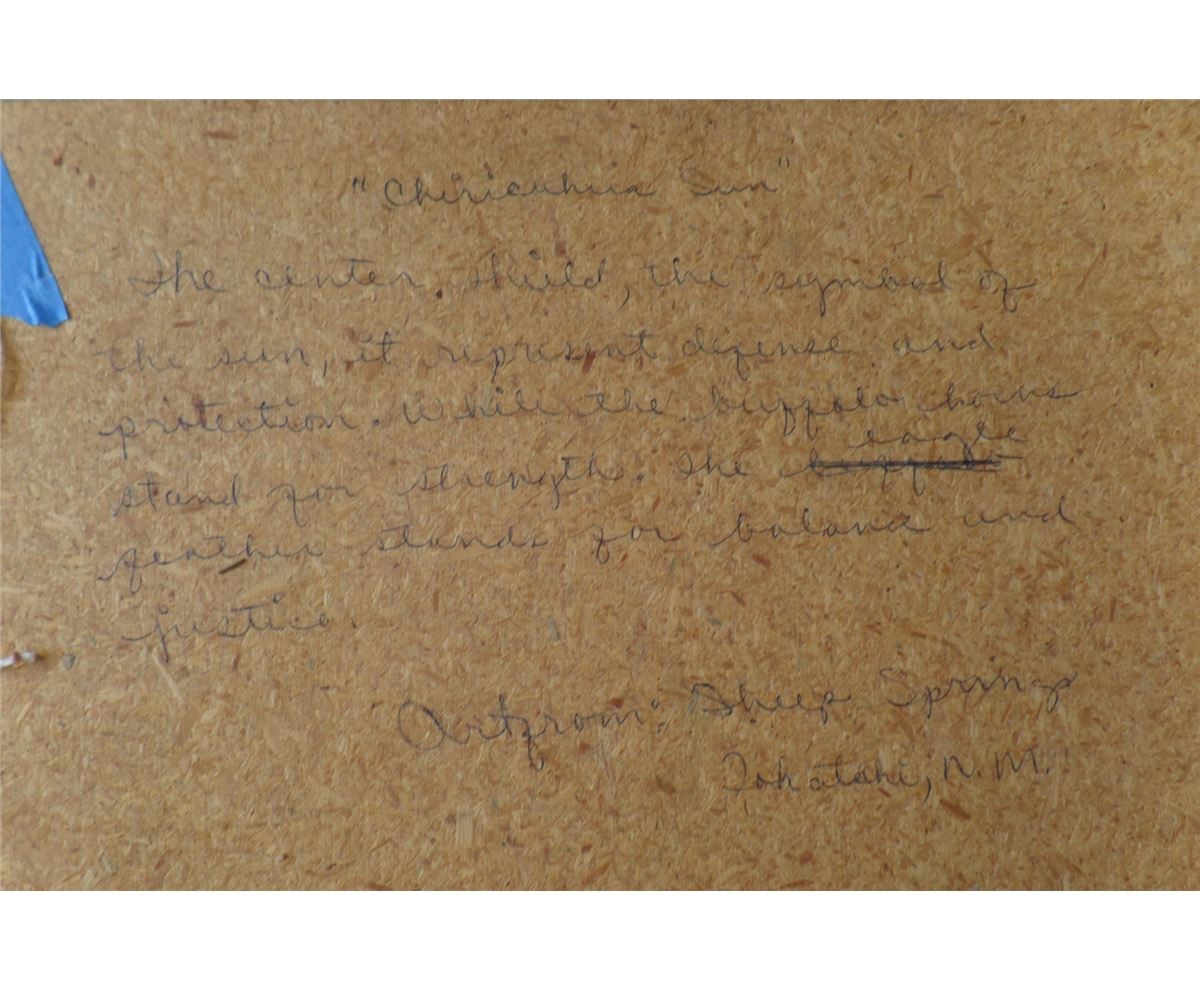 "Chiricuhua Sun"
The center shield, the symbol of
the sun, it represent defense and
protection. While the buffalo horns
eagle
stand for strength. The buffalo
feather stands for balance and
justice.
Art from: Sheep Springs
Tohatchi, N.M.